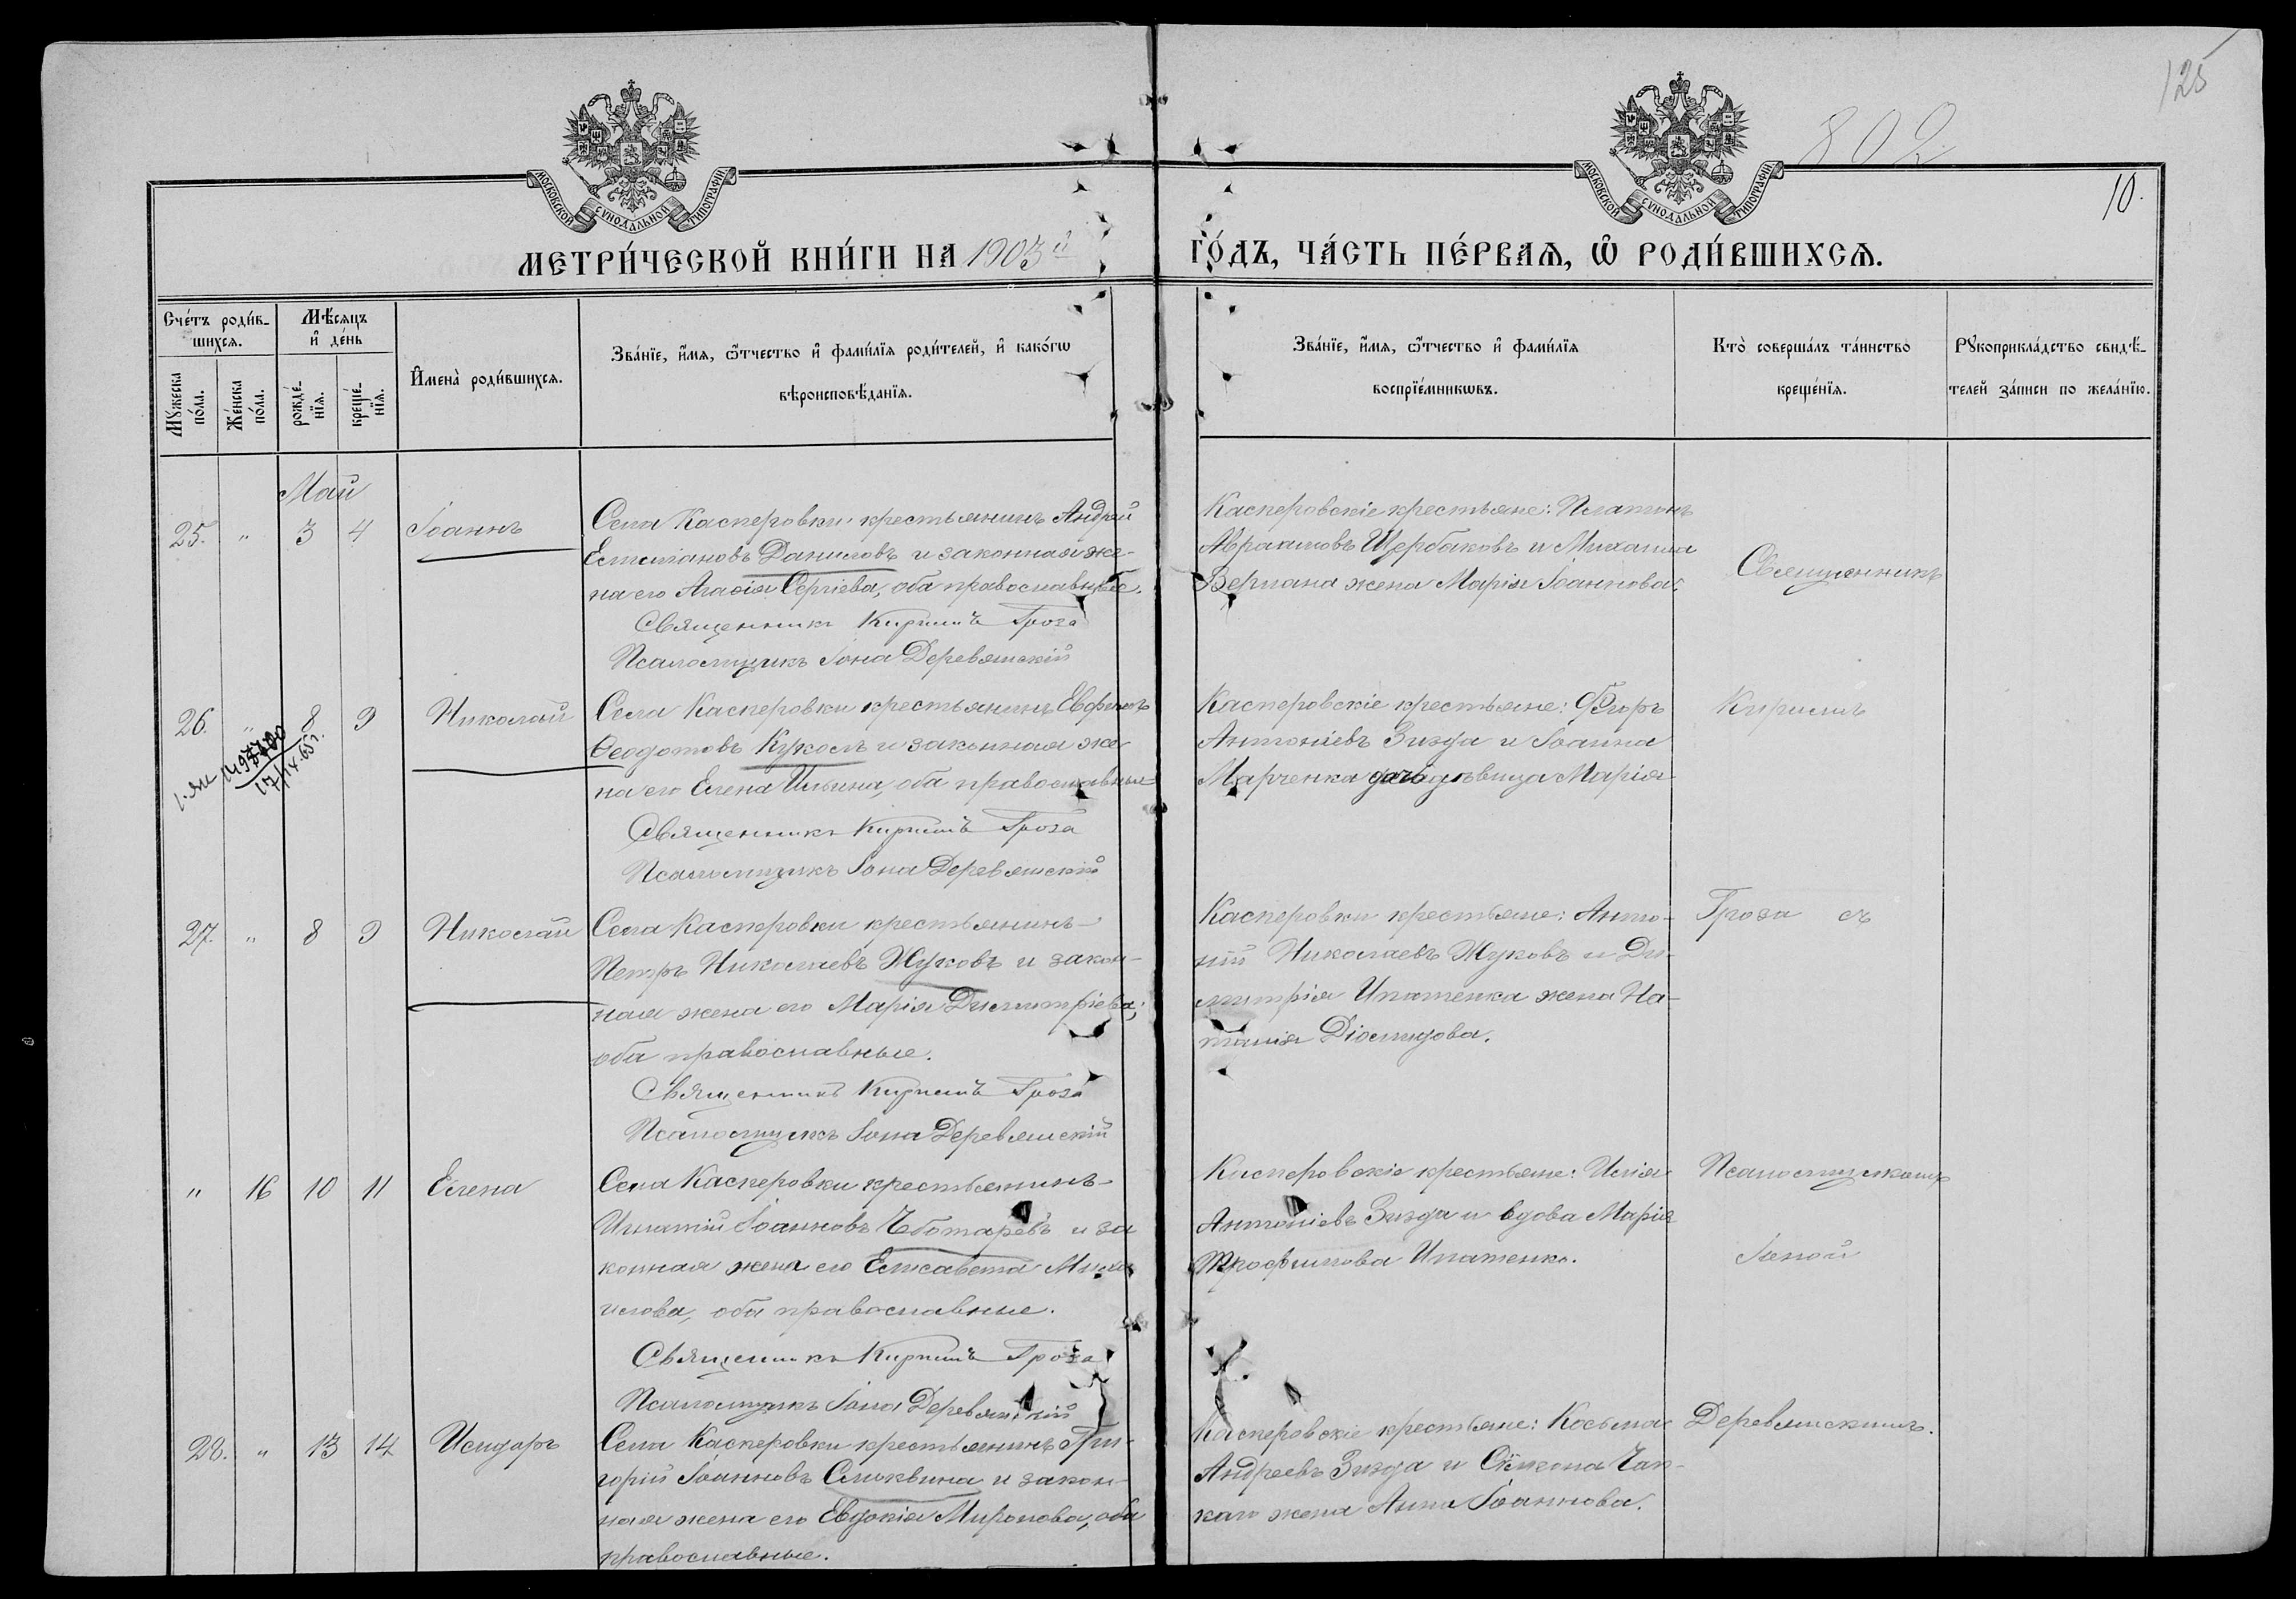 125
802
10.
МОСКОВСКОЙ СѴНОДАЛЬНОЙ ТИПОГРАФІИ
МОСКОВСКОЙ СѴНОДАЛЬНОЙ ТИПОГРАФІИ
МЕТРИ́ЧЕСКОЙ КНИ́ГИ НА 1903й
ГО́ДЪ, ЧА́СТЬ ПЕ́РВАѦ, Ѡ҆ РОДИ́ВШИХСѦ.
Сче́тъ роди́в-
шихсѧ.
Мѣ́сѧцъ
и҆ де́нь
Мꙋ́жеска по́ла.
Же́нска по́ла.
рожде́-нїѧ.
креще́-нїѧ.
И҆мена̀ роди́вшихсѧ.
Зва́нїе, и҆́мѧ, ѻ҆́тчество и҆ фами́лїѧ роди́телей, и҆ како́гѡ
вѣроисповѣ́данїѧ.
Зва́нїе, и҆́мѧ, ѻ҆́тчество и҆ фами́лїѧ
воспрїе́мникѡвъ.
Кто̀ соверша́лъ та́инство
креще́нїѧ.
Рꙋкоприкла́дство свидѣ́-
телей за́писи по жела́нїю.
Май
25. " 3 4 Іоаннъ
Села Касперовки крестьянинъ Андрей
Даниловъ и законная же-
на его Агафія Сергіева, оба православные.
Священникъ Кириллъ Гроза
Псаломщикъ Іона Деревянскій
Касперовскіе крестьяне: Платонъ
Авраамовъ Щербаковъ и Михаила
жена Марія Іоаннова.
Священникъ
26. " 8 9 Николай
Села Касперовки крестьянинъ
Феодотовъ и законная же-
на его Елена Ильина, оба православные
Священникъ Кириллъ Гроза
Псаломщикъ Іона Деревянскій
Касперовскіе крестьяне:
Антоніевъ Зизда и Іоанна
Марченка дочь дѣвица Марія
Кириллъ
27. " 8 9 Николай
Села Касперовки крестьянинъ
Петръ Николаевъ Жуковъ и закон-
ная жена его Марія Димитріева,
оба православные.
Священникъ Кириллъ Гроза
Псаломщикъ Іона Деревянскій
Касперовки крестьяне: Анто-
ній Николаевъ Жуковъ и Ди-
митрія Ипатенка жена На-
талія Діомидова.
Гроза съ
" 16 10 11 Елена
Села Касперовки крестьянинъ
Игнатій Іоанновъ Чеботаревъ и за
конная жена его Елисавета
оба православные.
Священникъ Кириллъ Гроза
Псаломщикъ Іона Деревянскій
Касперовскіе крестьяне: Илія
Антоніевъ Зизда и вдова Марія
Трофимова Ипатенко.
Псаломщикомъ
Іоной
28. " 13 14 Исидоръ
Села Касперовки крестьянинъ Гри-
горій Іоанновъ и закон-
ная жена его Евдокія Миронова, оба
православные.
Касперовскіе крестьяне: Косьма
Андреевъ Зизда и Симеона Чап-
каго жена Анна Іоаннова.
Деревянскимъ.